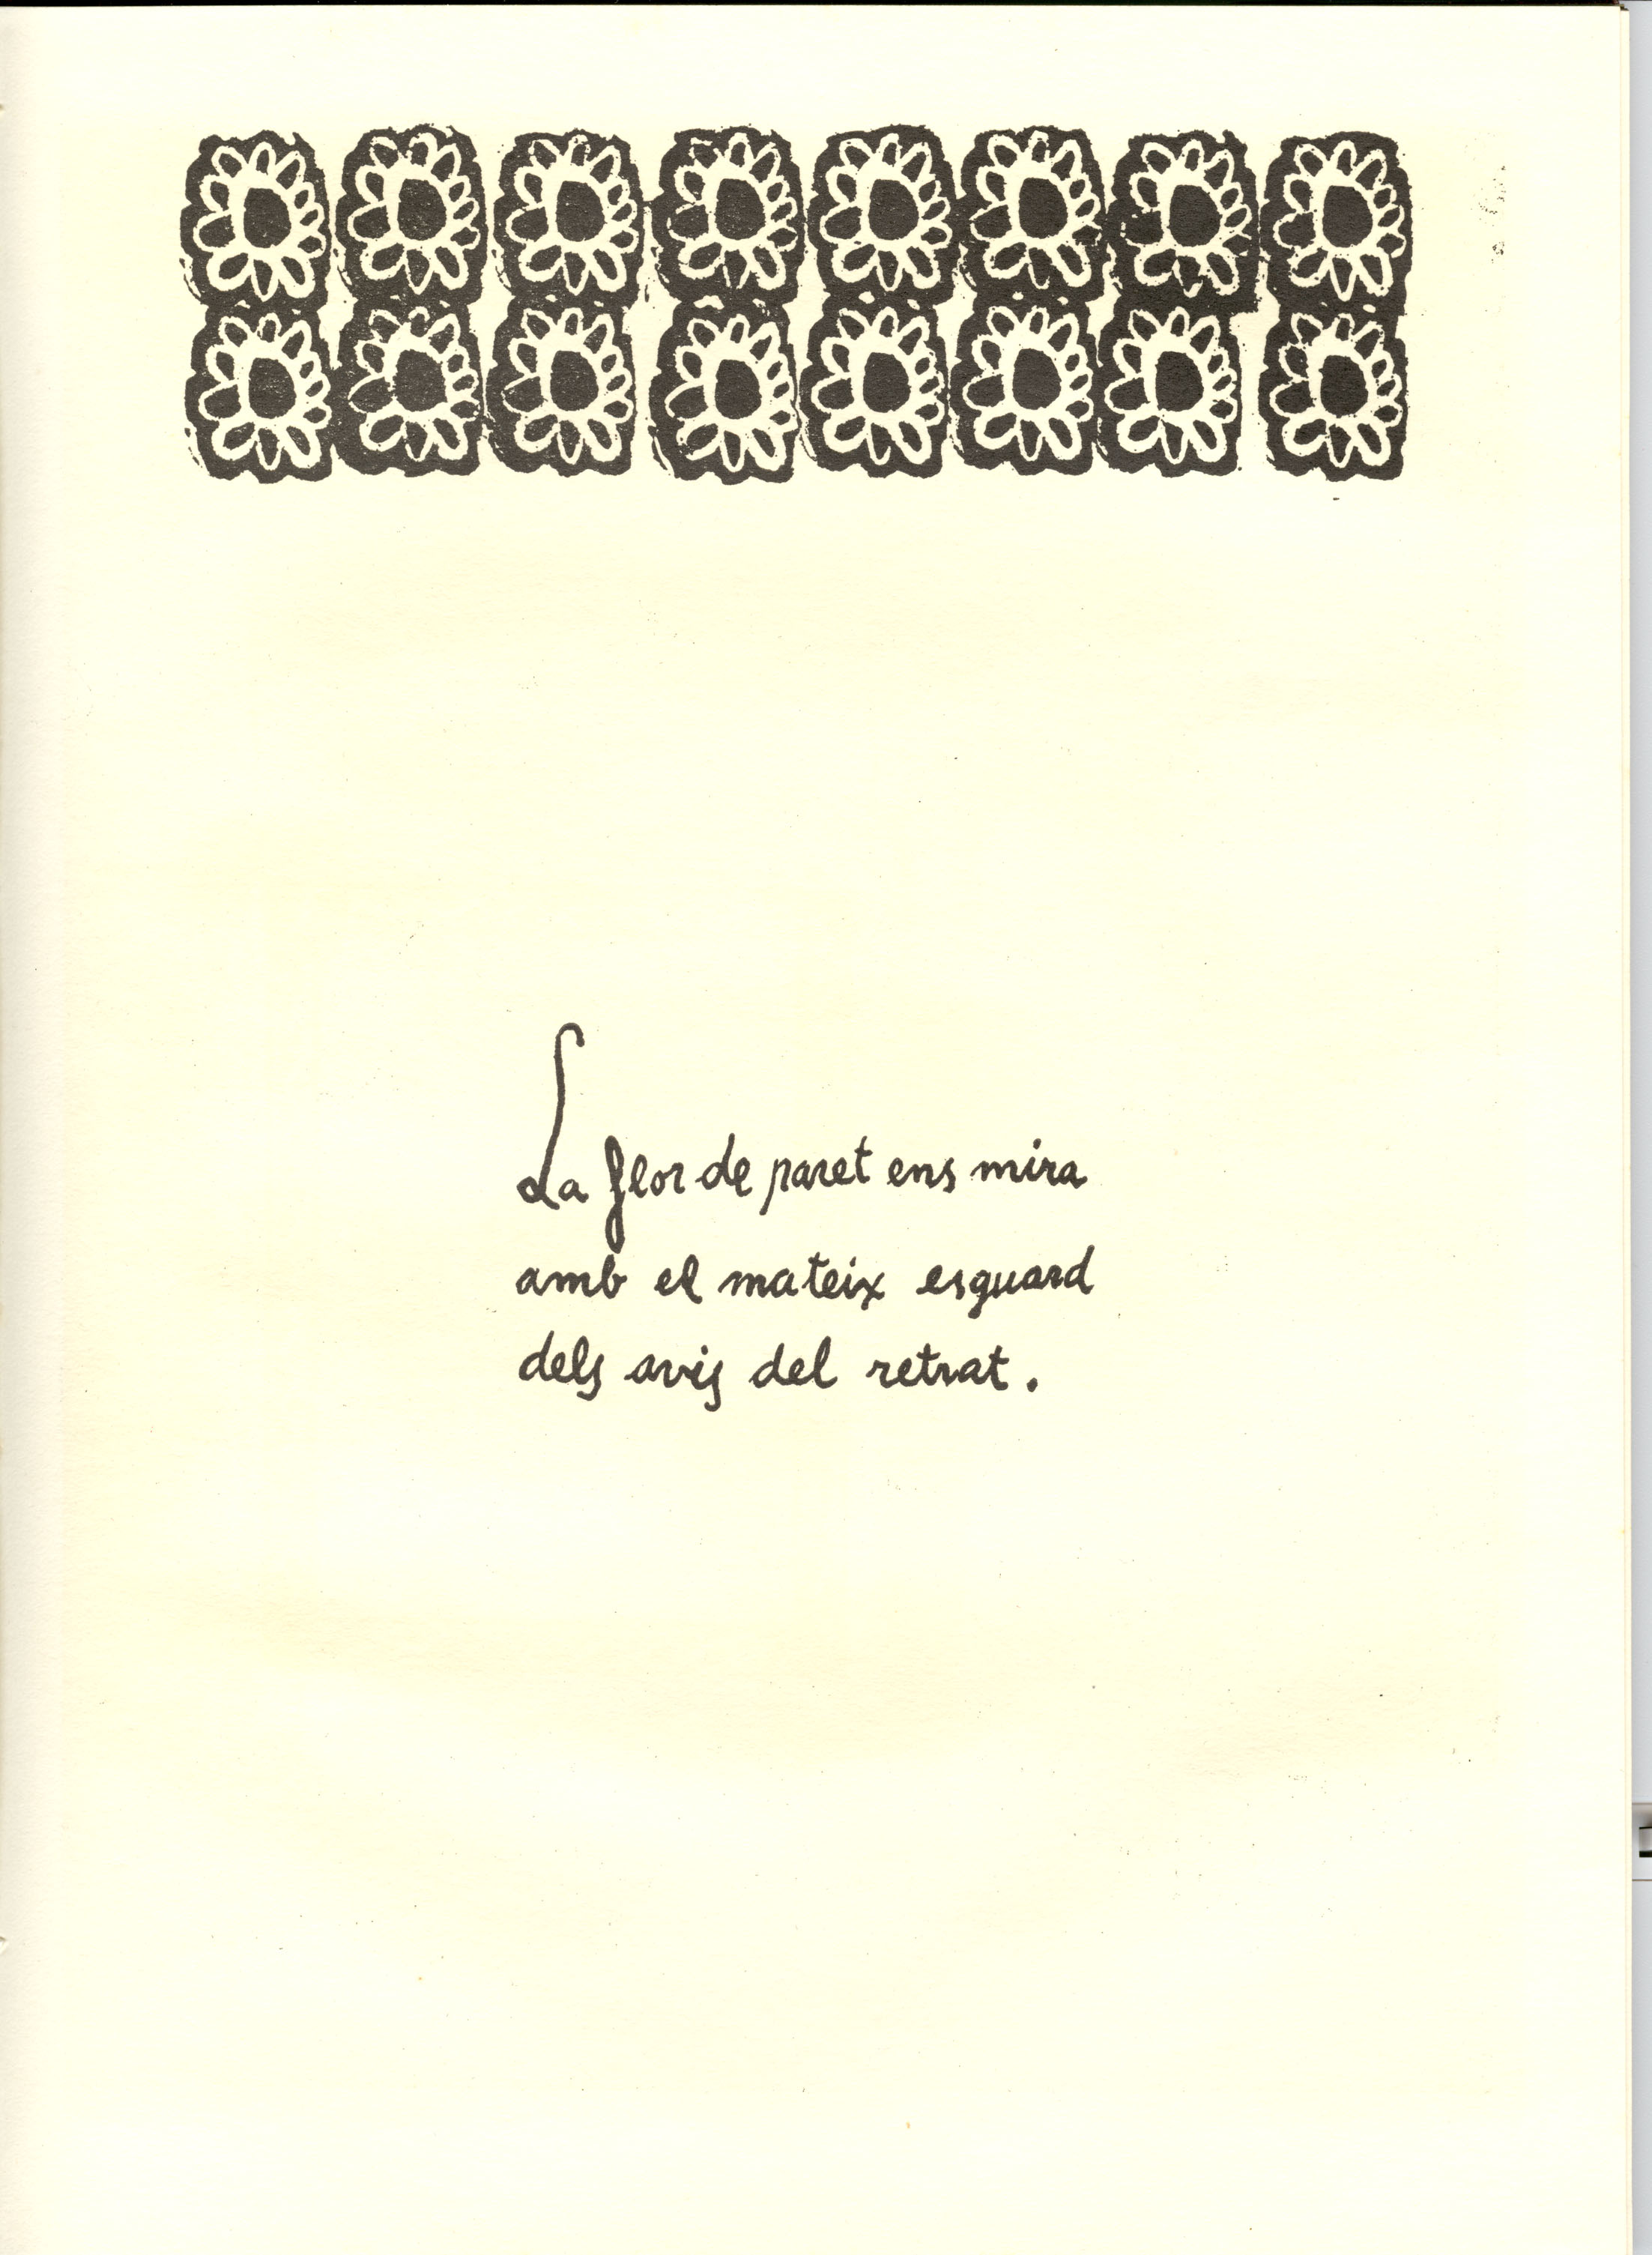 La flor de paret ens mira
amb el mateix esguard
dels avis del retrat.